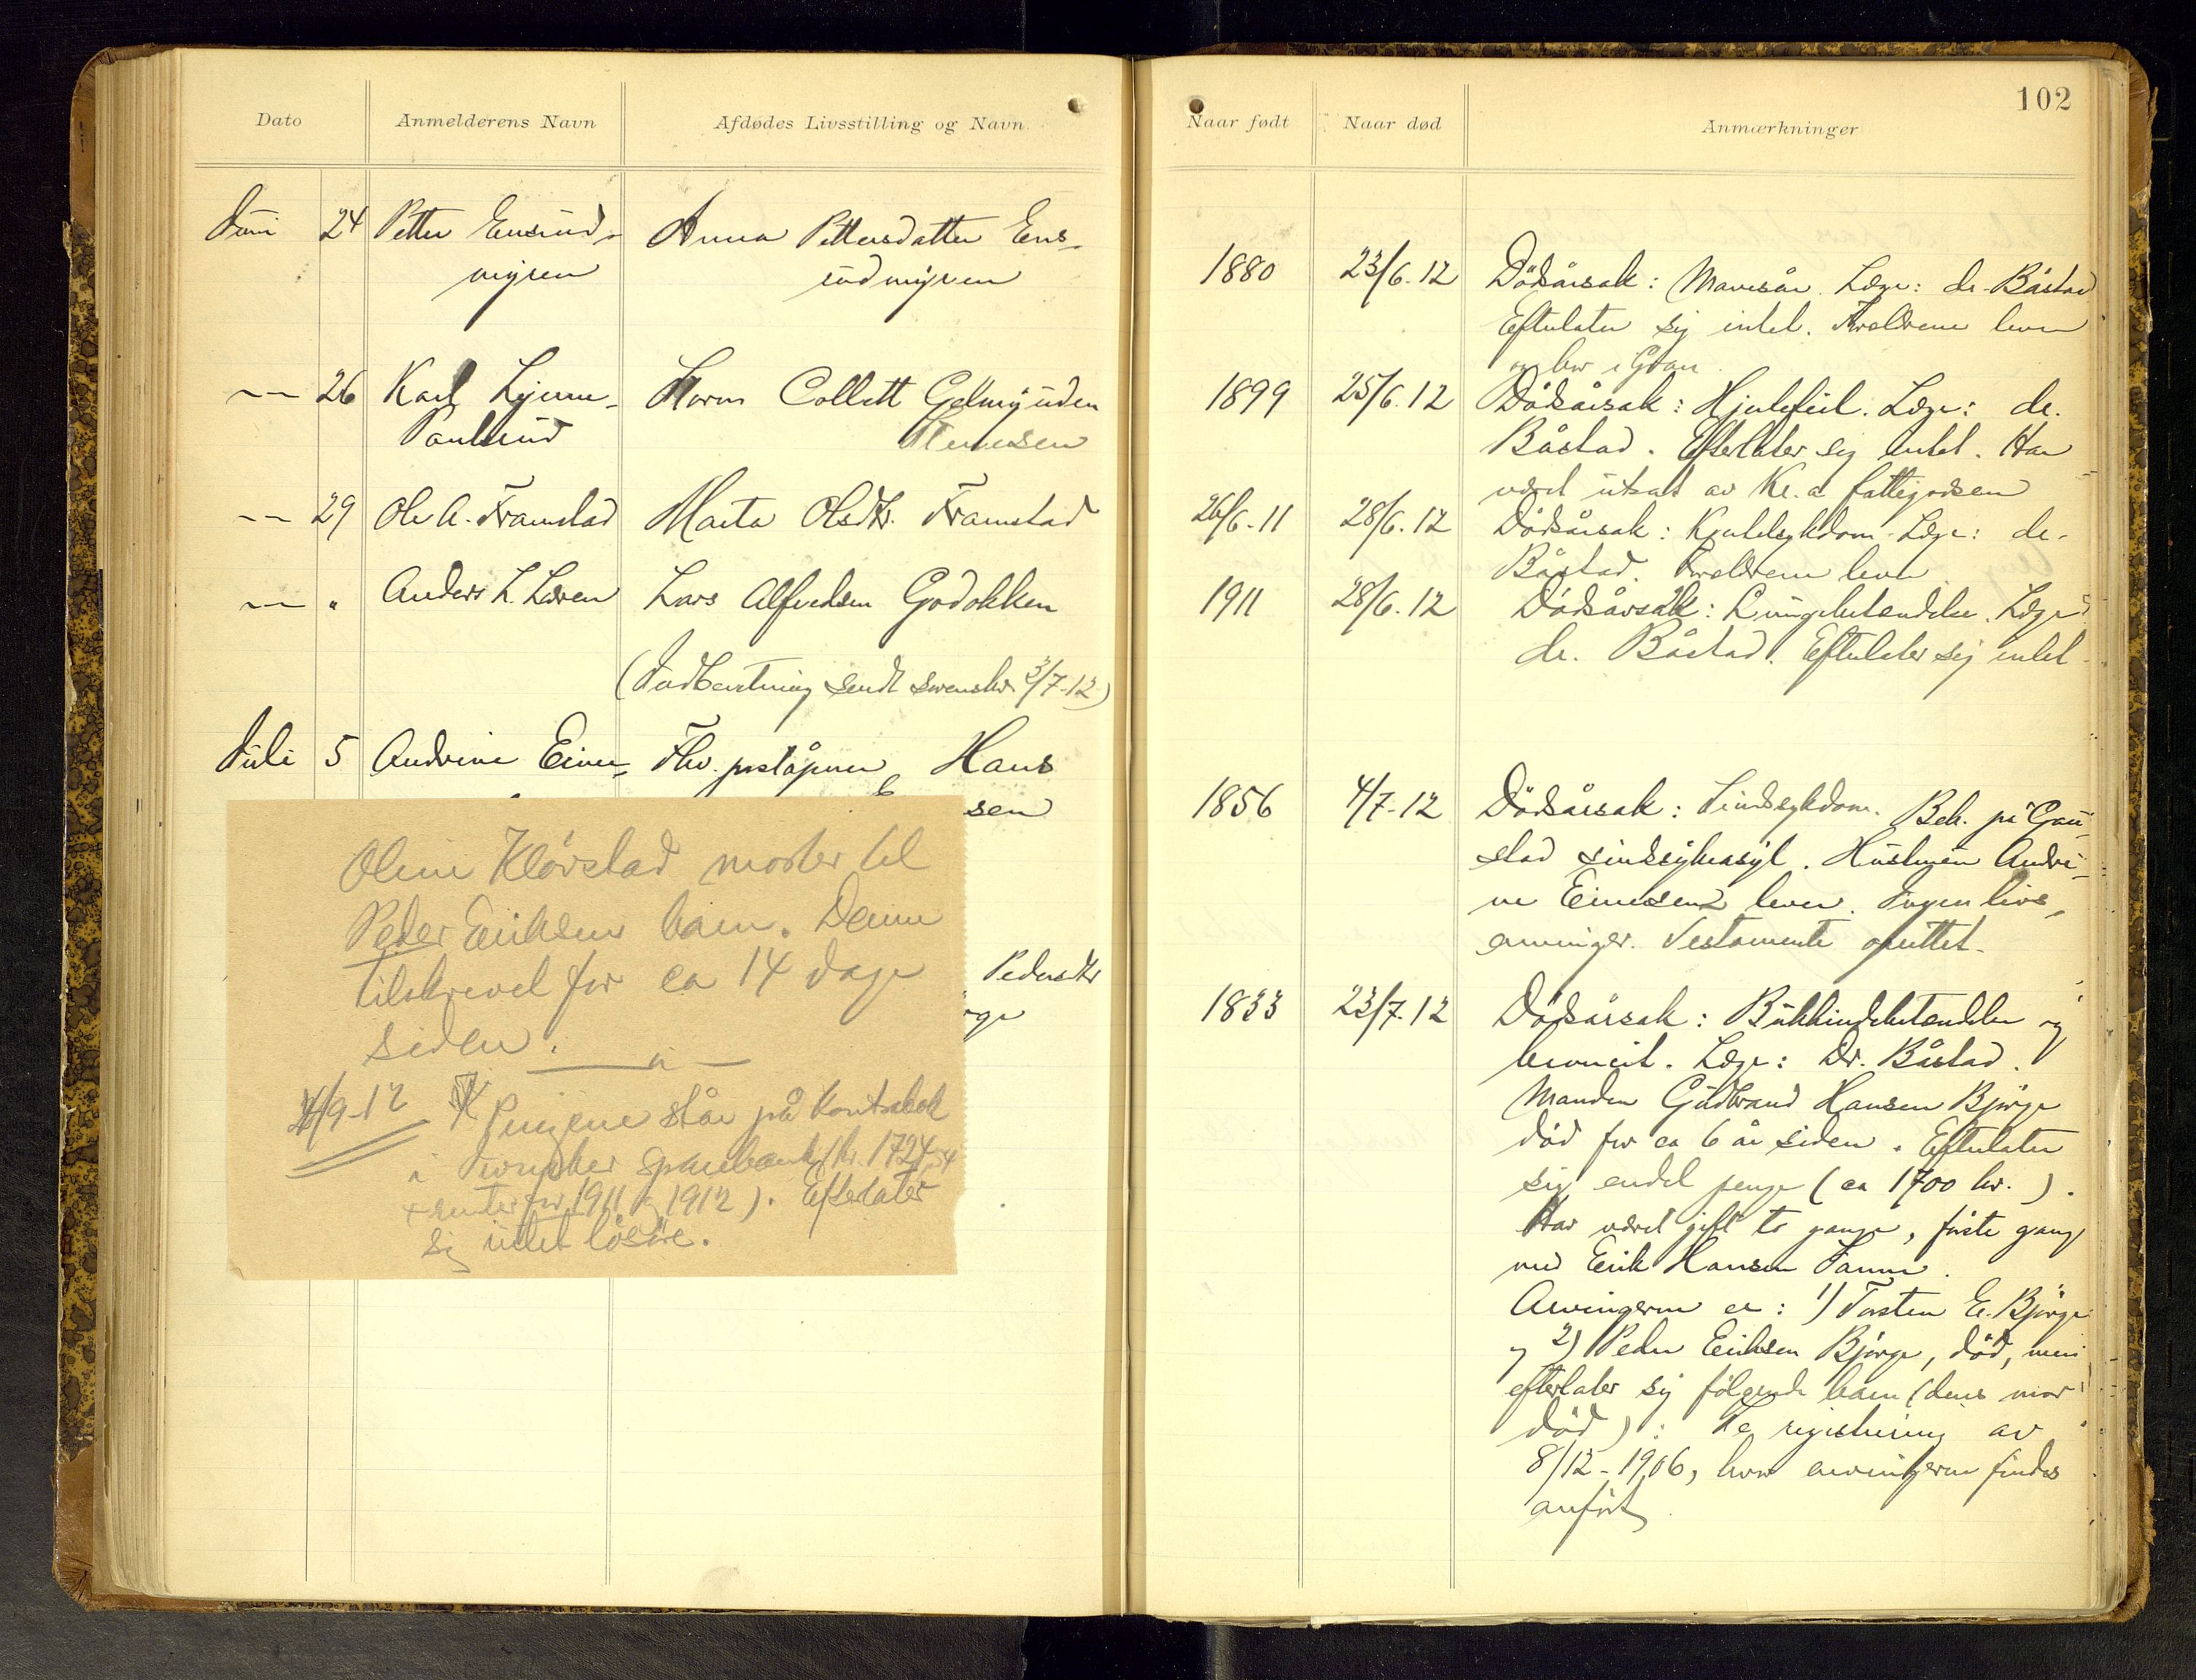 Dato
Anmelderens Navn
Afdødes Livsstilling og Navn
Juni 24 Petter Ensrud-
myren
Anna Pettersdatter Ens-
rudmyren
-"- 26 Karl
Paulsrud
Collett
-"- 29 Ole A. Framstad
Marta Olsdtr. Framstad
-"- " Anders L. Løren
Lars Alfredsen Godokken
(Indberetning sendt 3/7-12)
Juli 5 Andrine
Fhv. poståpner Hans
sen
Pedersdtr
rge
Oline Kløvstad moster til
Peder Eriksens barn. Denne
tilskrevet for ca 14 dage
siden.
/9-12 Pengene står på kontrabok
i sparebank (kr. 1724,54
+ renter for 1911 og 1912). Efterlater
sig intet løsøre.
102
Naar født
Naar død
Anmærkninger
1880 23/6.12 Dødsårsak: Mavesår. Læge: dr. Båstad
Efterlater sig intet. Forældrene lever
og bor i Gran.
1899 25/6.12 Dødsårsak: Hjertefeil. Læge: dr.
Båstad. Efterlater sig intet. Har
været utsat av Kr.a fattigvæsen
26/6-11 28/6.12 Dødsårsak: Læge: dr.
Båstad. Forældrene lever
1911 28/6.12 Dødsårsak: Lungebetændelse. Læge:
dr. Båstad. Efterlater sig intet.
1856 4/7-12 Dødsårsak: Sindssykdom. Beh. på Gau-
stad sindssykeasyl. Hustruen Andri-
ne lever. Ingen livs-
arvinger. Testamente oprettet.
1833 23/7.12 Dødsårsak: Bukhindebetændelse og
Læge: Dr. Båstad.
Manden Gudbrand Hansen Bjørge
død for ca 6 år siden. Efterlater
sig endel penge (ca 1700 kr.).
Har været gift to gange, første gang
med Erik Hansen
Arvingerne er: 1) Torsten E. Bjørge
og 2) Peder Eriksen Bjørge, død, men
efterlater sig følgende barn (deres mor
død): Se registrering av
8/12-1906, hvor arvingerne findes
anført